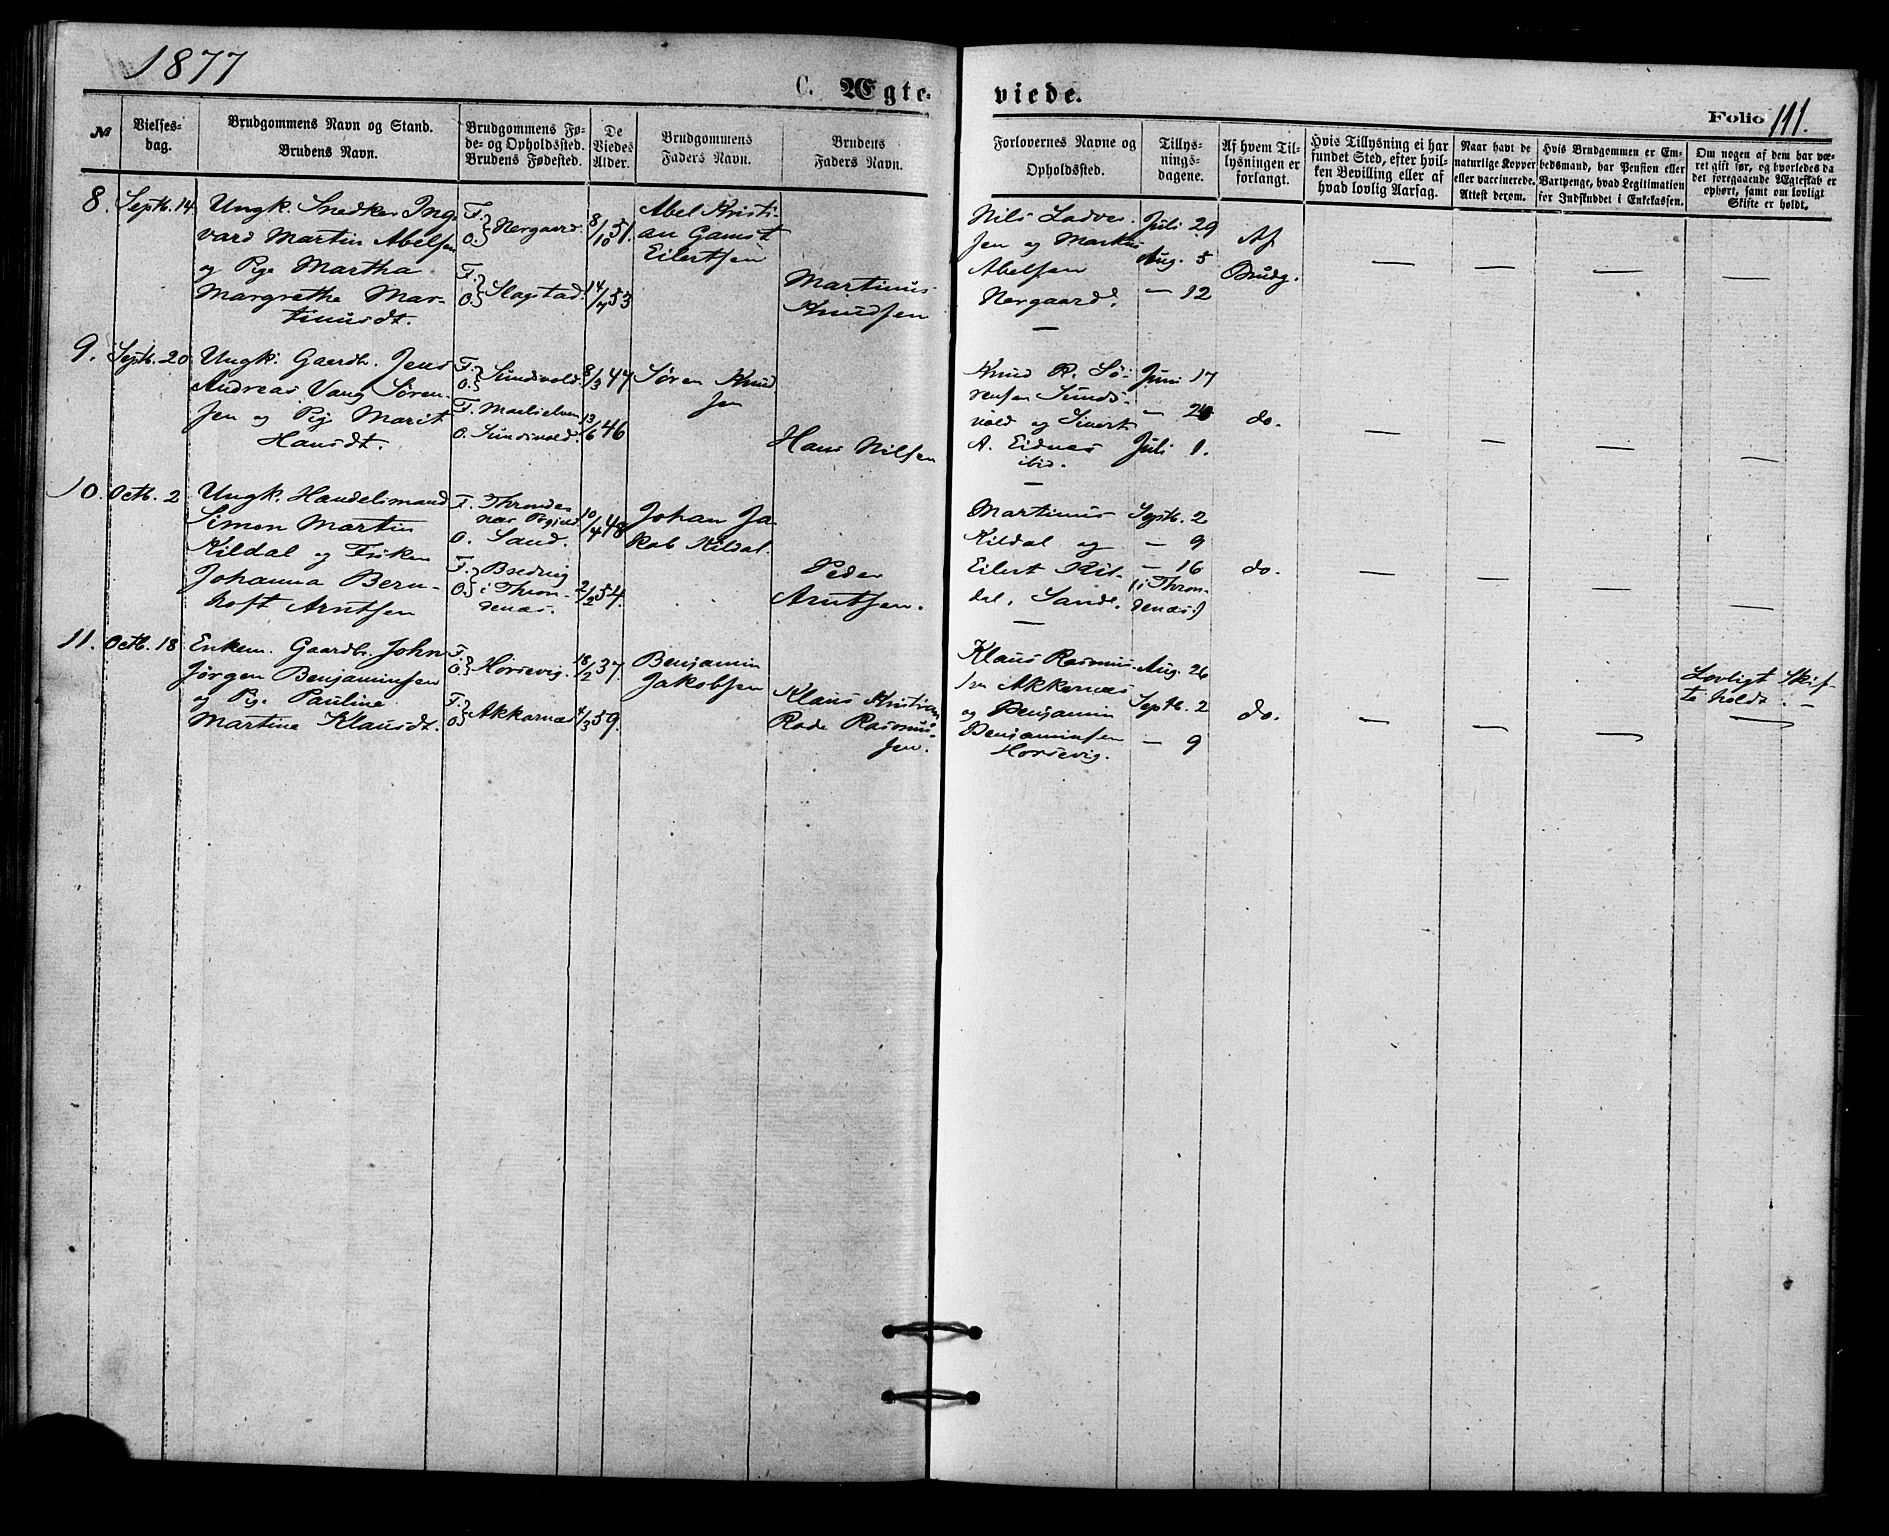 1877
C. Ægte-
viede.
Folio 111.
№
Vielses-
dag.
Brudgommens Navn og Stand.
Brudens Navn.
Brudgommens Fø-
de- og Opholdssted.
Brudens Fødested.
De
Viedes
Alder.
Brudgommens
Faders Navn.
Brudens
Faders Navn.
Forlovernes Navne og
Opholdssted.
Tillys-
nings-
dagene.
Af hvem Til-
lysningen er
forlangt.
Hvis Tillysning ei har
fundet Sted, efter hvil-
ken Bevilling eller af
hvad lovlig Aarsag.
Naar havt de
naturlige Kopper
eller vaccinerede.
Attest derom.
Hvis Brudgommen er Em-
bedsmand, har Pension eller
Vartpenge, hvad Legitimation
for Indskuddet i Enkekassen.
Om nogen af dem har væ-
ret gift før, og hvorledes da
det foregaaende Ægteskab er
ophørt, samt om lovligt
Skifte er holdt.
8.
Septb. 14
Ungk. Snedker Ing-
vard Martin Abelsen
og Pige Martha
Margrethe Mar-
tinusdt.
F.
O. } Nergaard.
F.
O. } Slagstad.
8/10 51.
14/7 53
Abel Kristi-
an Gamst
Eilertsen
Martinus
Knudsen
Nils Ludve
sen og Markus
Abelsen
Nergaard.
—
Juli 29
Aug. 5
— 12
Af
Brudg.
—
—
—
—
9.
Septb. 20
Ungk. Gaardb. Jens
Andreas Vang Søren-
sen og Pig. Marit
Hansdt.
F.
O. } Sundsvold.
F. Maelselven
O. Sundsvold.
8/3 47
13/6 46
Søren Knud
sen
Hans Nilsen
Knud R. Sø-
rensen Sunds-
vold og Sivert
A. Eidnes
ibid.
—
Juni 17
— 24
Juli 1.
do.
—
—
—
—
10.
Octb. 2
Ungk. Handelsmand
Simon Martin
Kildal og Frøken
Johanna Bern-
hoft Arntsen
F. Thronde
næs Pgjeld
O. Sand.
F.
O. } Bredvig
i Thron-
denæs.
10/4 48
2/2 54.
Johan Ja-
kob Kildal.
Peder
Arntsen.
Martinus
Kildal og
Eilert Kil-
dal, Sand.
—
Septb. 2
— 9
— 16
(i Thron-
denæs)
do.
—
—
—
—
11.
Octb. 18
Enkem. Gaardb. John
Jørgen Benjaminsen
og Pige Pauline
Martine Klausdt.
F.
O. } Horsevig.
F.
O. } Akkarnæs
18/2 37.
4/3 59.
Benjamin
Jakobsen
Klaus Kristian
Rode Rasmus-
sen.
Klaus Rasmus-
sen Akkernæs
og Benjamin
Benjaminsen
Horsevig.
Aug. 26
Septb. 2
— 9
do.
—
—
—
Lovligt Skif-
te holdt. —
—